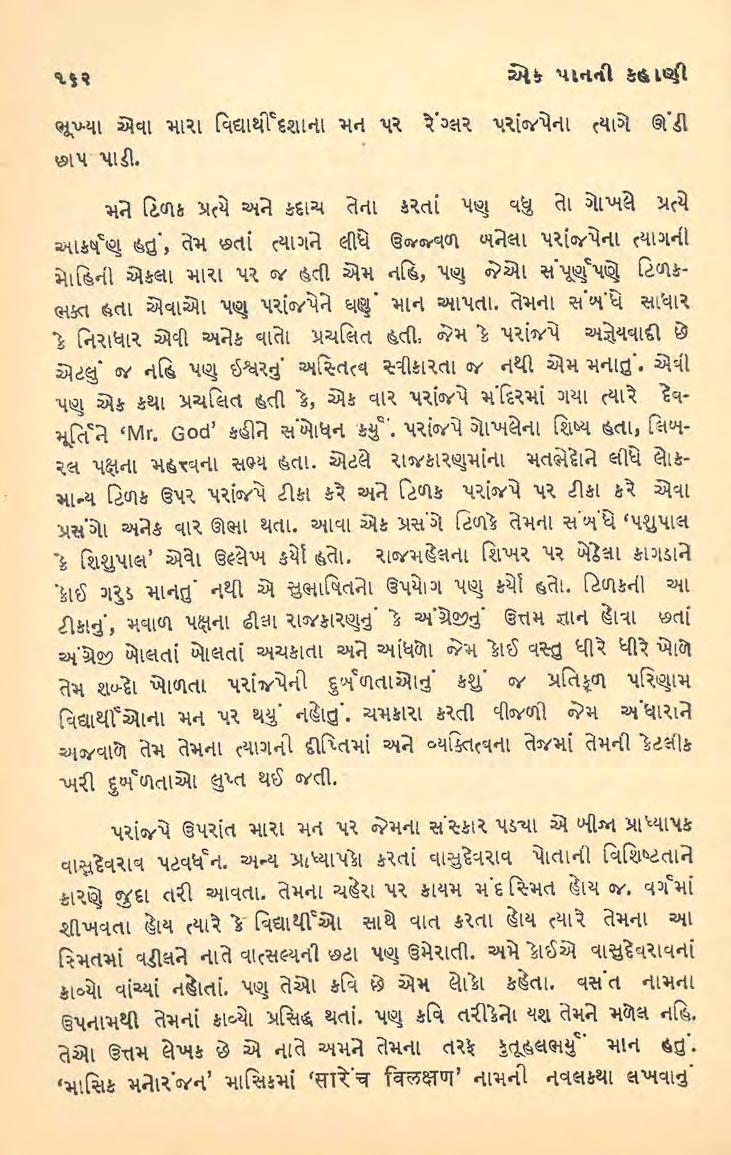 ૧૬૨ એક પાનની કહાણી
ભૂખ્યા એવા મારા વિદ્યાર્થીદશાના મન પર રેંગ્લર પરાંજપેના ત્યાગે ઊંડી
છાપ પાડી.
મને ટિળક પ્રત્યે અને કદાચ તેના કરતાં પણ વધુ તો ગોખલે પ્રત્યે
આકર્ષણ હતું, તેમ છતાં ત્યાગને લીધે ઉજ્જવળ બનેલા પરાંજપેના ત્યાગની
મોહિની એકલા મારા પર જ હતી એમ નહિ, પણ જેઓ સંપૂર્ણપણે ટિળક-
ભક્ત હતા એવાઓ પણ પરાંજપેને ઘણું માન આપતા. તેમના સંબંધે સાધાર
કે નિરાધાર એવી અનેક વાતો પ્રચલિત હતી. જેમ કે પરાંજપે અજ્ઞેયવાદી છે
એટલું જ નહિ પણ ઈશ્વરનું અસ્તિત્વ સ્વીકારતા જ નથી એમ મનાતું. એવી
પણ એક કથા પ્રચલિત હતી કે, એક વાર પરાંજપે મંદિરમાં ગયા ત્યારે દેવ-
મૂર્તિને ‘Mr. God’ કહીને સંબોધન કર્યું. પરાંજપે ગોખલેના શિષ્ય હતા, લિબ-
રલ પક્ષના મહત્ત્વના સભ્ય હતા. એટલે રાજકારણમાંના મતભેદોને લીધે લોક-
માન્ય ટિળક ઉપર પરાંજપે ટીકા કરે અને ટિળક પરાંજપે પર ટીકા કરે એવા
પ્રસંગો અનેક વાર ઊભા થતા. આવા એક પ્રસંગે ટિળકે તેમના સંબંધે ‘પશુપાલ
કે શિશુપાલ’ એવો ઉલ્લેખ કર્યો હતો. રાજમહેલના શિખર પર બેઠેલા કાગડાને
કોઈ ગરુડ માનતું નથી એ સુભાષિતનો ઉપયોગ પણ કર્યો હતો. ટિળકની આ
ટીકાનું, મવાળ પક્ષના ઢીલા રાજકારણનું કે અંગ્રેજીનું ઉત્તમ જ્ઞાન હોવા છતાં
અંગ્રેજી બોલતાં બોલતાં અચકાતા અને આંધળો જેમ કોઈ વસ્તુ ધીરે ધીરે ખોળે
તેમ શબ્દો ખોળતા પરાંજપેની દુર્બળતાઓનું કશું જ પ્રતિકૂળ પરિણામ
વિદ્યાર્થીઓના મન પર થયું નહોતું. ચમકારા કરતી વીજળી જેમ અંધારાને
અજવાળે તેમ તેમના ત્યાગની દીપ્તિમાં અને વ્યક્તિત્વના તેજમાં તેમની કેટલીક
ખરી દુર્બળતાઓ લુપ્ત થઈ જતી.
પરાંજપે ઉપરાંત મારા મન પર જેમના સંસ્કાર પડ્યા એ બીજા પ્રાધ્યાપક
વાસુદેવરાવ પટવર્ધન. અન્ય પ્રાધ્યાપકો કરતાં વાસુદેવરાવ પોતાની વિશિષ્ટતાને
કારણે જુદા તરી આવતા. તેમના ચહેરા પર કાયમ મંદસ્મિત હોય જ. વર્ગમાં
શીખવતા હોય ત્યારે કે વિદ્યાર્થીઓ સાથે વાત કરતા હોય ત્યારે તેમના આ
સ્મિતમાં વડીલને નાતે વાત્સલ્યની છટા પણ ઉમેરાતી. અમે કોઈએ વાસુદેવરાવનાં
કાવ્યો વાંચ્યાં નહોતાં. પણ તેઓ કવિ છે એમ લોકો કહેતા. વસંત નામના
ઉપનામથી તેમનાં કાવ્યો પ્રસિદ્ધ થતાં. પણ કવિ તરીકેનો યશ તેમને મળેલ નહિ.
તેઓ ઉત્તમ લેખક છે એ નાતે અમને તેમના તરફ કુતૂહલભર્યું માન હતું.
‘માસિક મનોરંજન’ માસિકમાં ‘સારેંच विलक्षण’ નામની નવલકથા લખવાનું